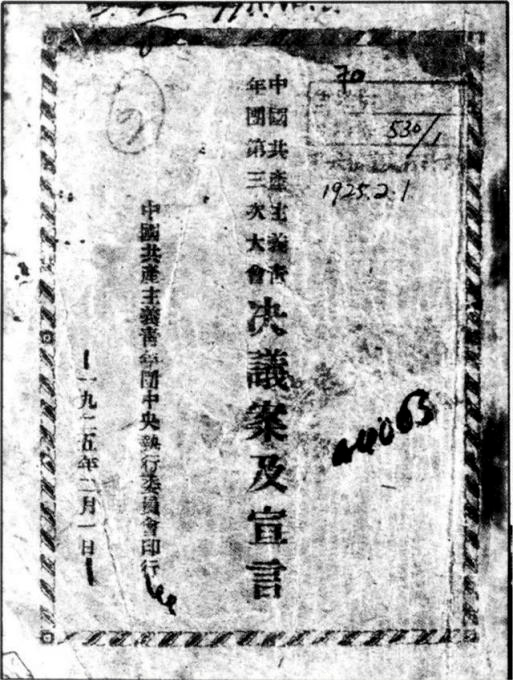 70
530/1
1925.2.1
中國共產主義青
年團第三次大會
決議案及宣言
44063
中國共產主義青年團中央執行委員會印行
一九二五年二月一日